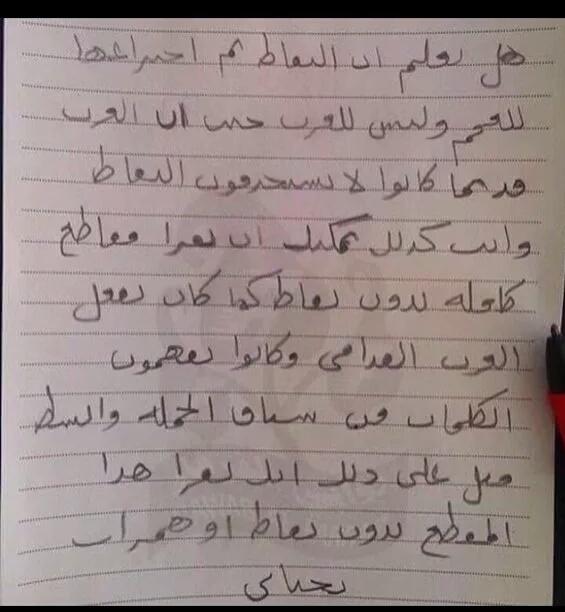 هل تعلم ان النقاط تم اختراعها
للعجم وليس للعرب حيث ان العرب
قديما كانوا لا يستخدمون النقاط
وانت كذلك يمكنك ان تقرا مقاطع
كامله بدون نقاط كما كان يفعل
العرب القدامى وكانوا يفهمون
الكلمات من سياق الجمله وابسط
مثل على ذلك انك تقرا هذا
المقطع بدون نقاط او همزات
تحياتي